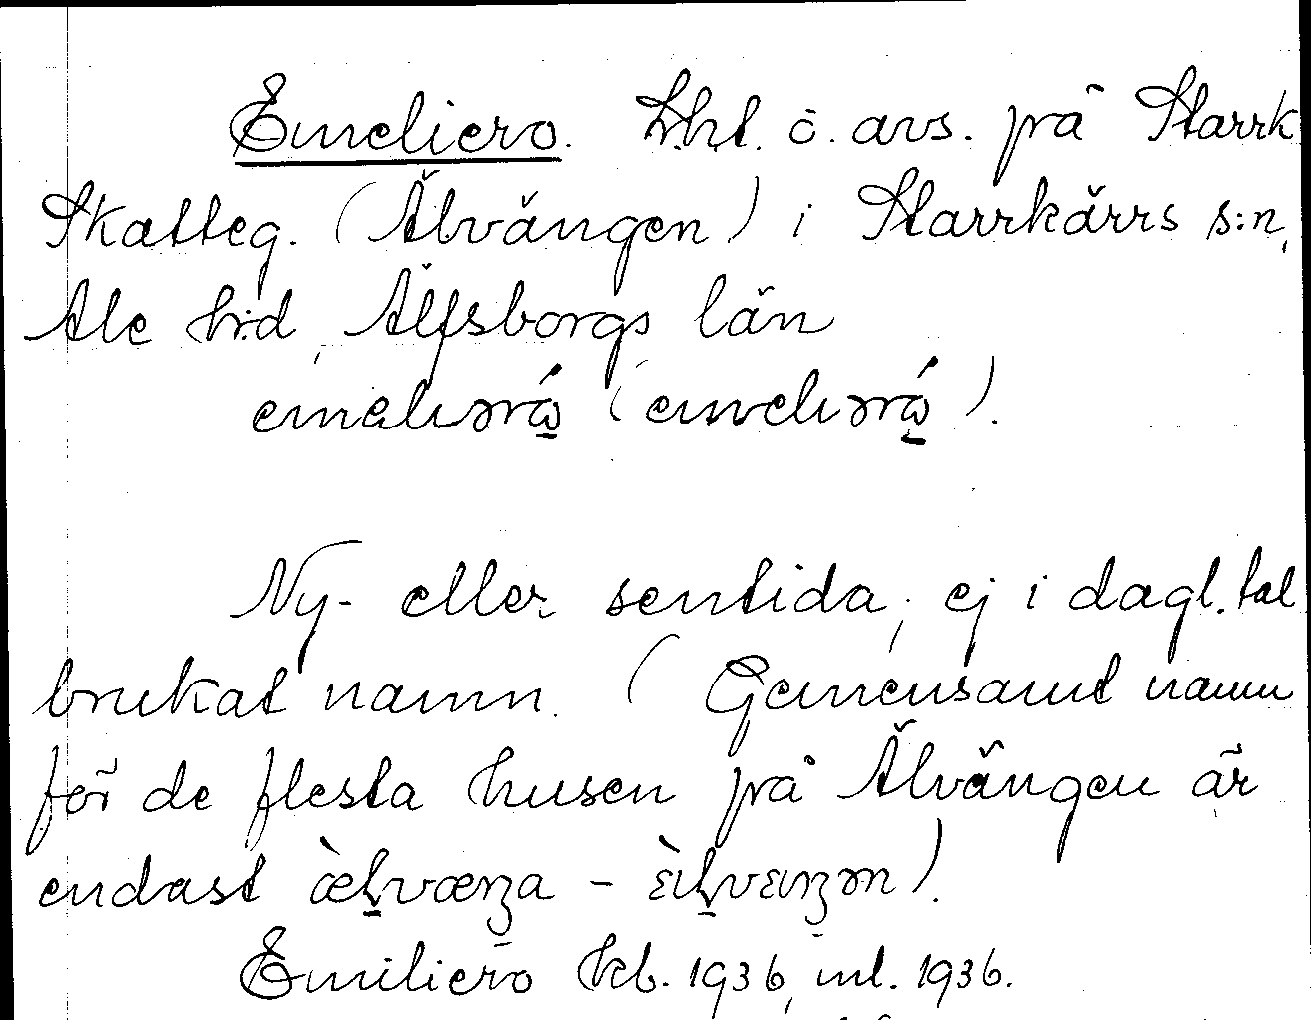 Emeliero. Lht. ö. avs. på Starrk
Skatteg. (Älvängen) i Starrkärrs s:n,
Ale h:d, Älfsborgs län
emelıərǿ (emelıərǿ).
Ny- eller sentida, ej i dagl. tal
brukat namn. (Gemensamt namn
för de flesta husen på Älvängen är
endast æ̀ḷvæŋa - ɛ̀ıḷvɛıŋən).
Emiliero kb. 1936, ml. 1936.